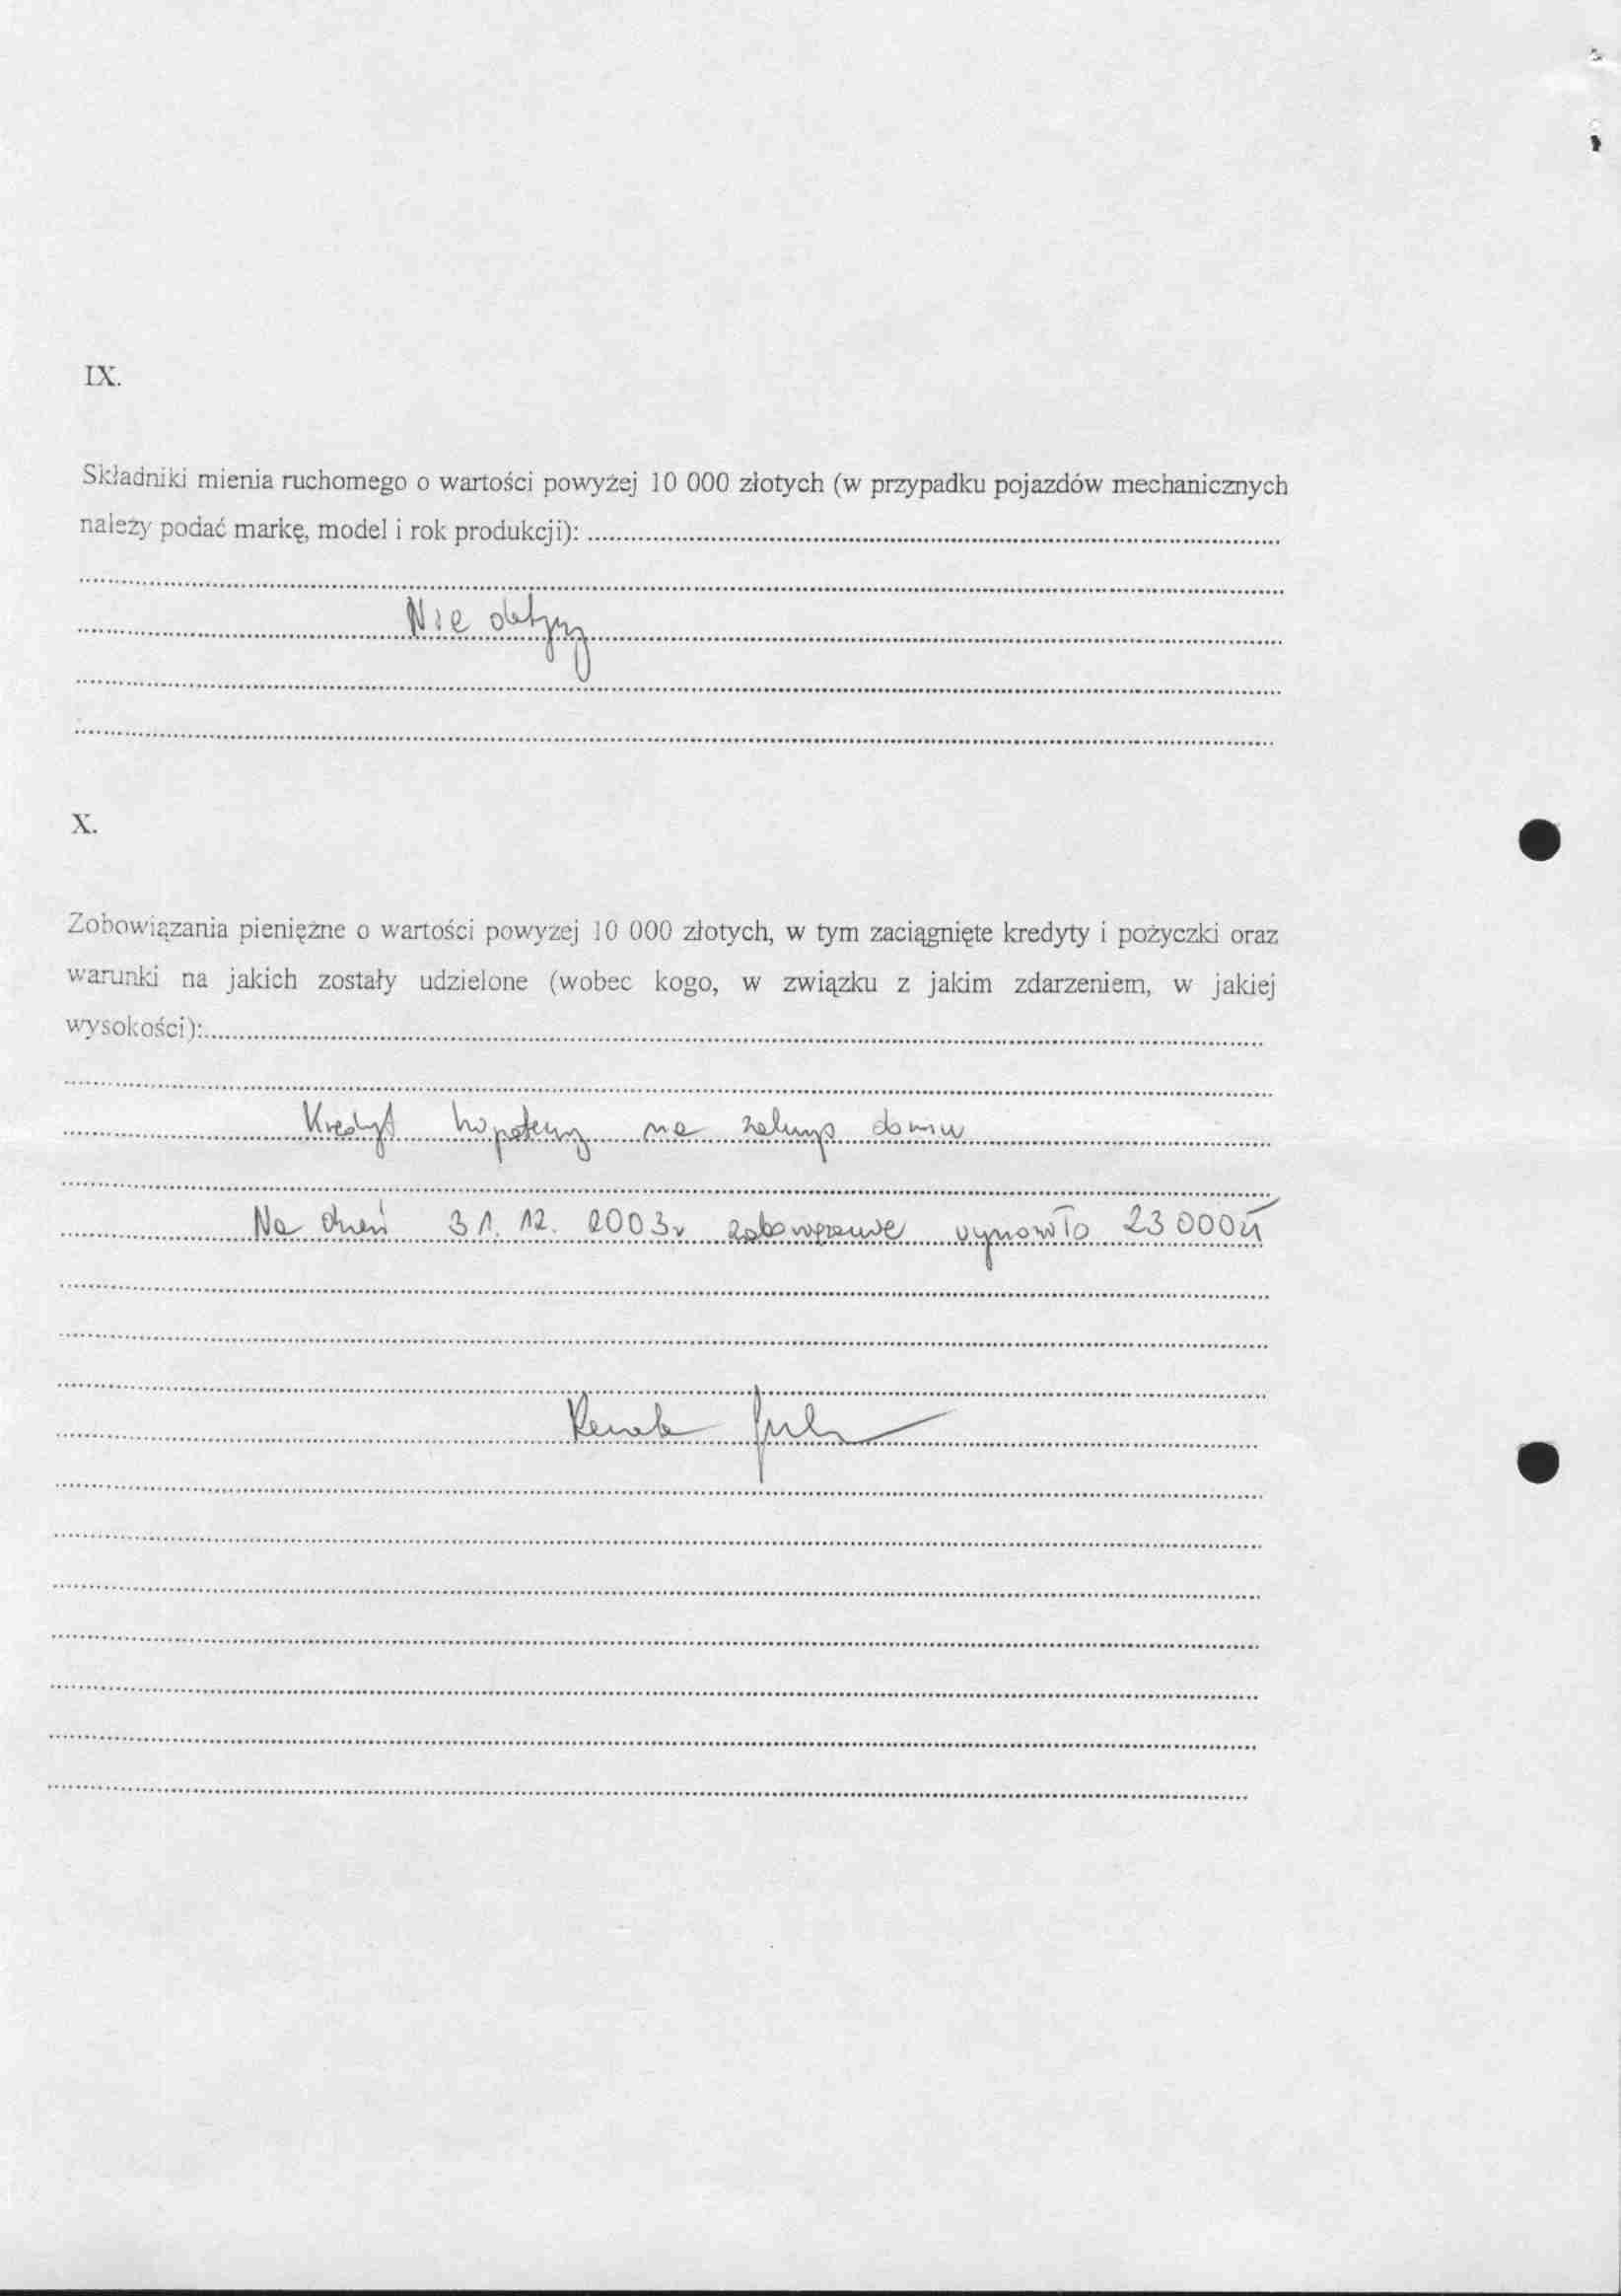 IX.
Składniki mienia ruchomego o wartości powyżej 10 000 złotych (w przypadku pojazdów mechanicznych
należy podać markę, model i rok produkcji):
Nie dotyczy
X.
Zobowiązania pieniężne o wartości powyżej 10 000 złotych, w tym zaciągnięte kredyty i pożyczki oraz
warunki na jakich zostały udzielone (wobec kogo, w związku z jakim zdarzeniem, w jakiej
wysokości):
Kredyt hipoteczny na zakup domu
Na dzień 31.12.2003r zobowiązanie wynosiło 23 000 zł
Renata